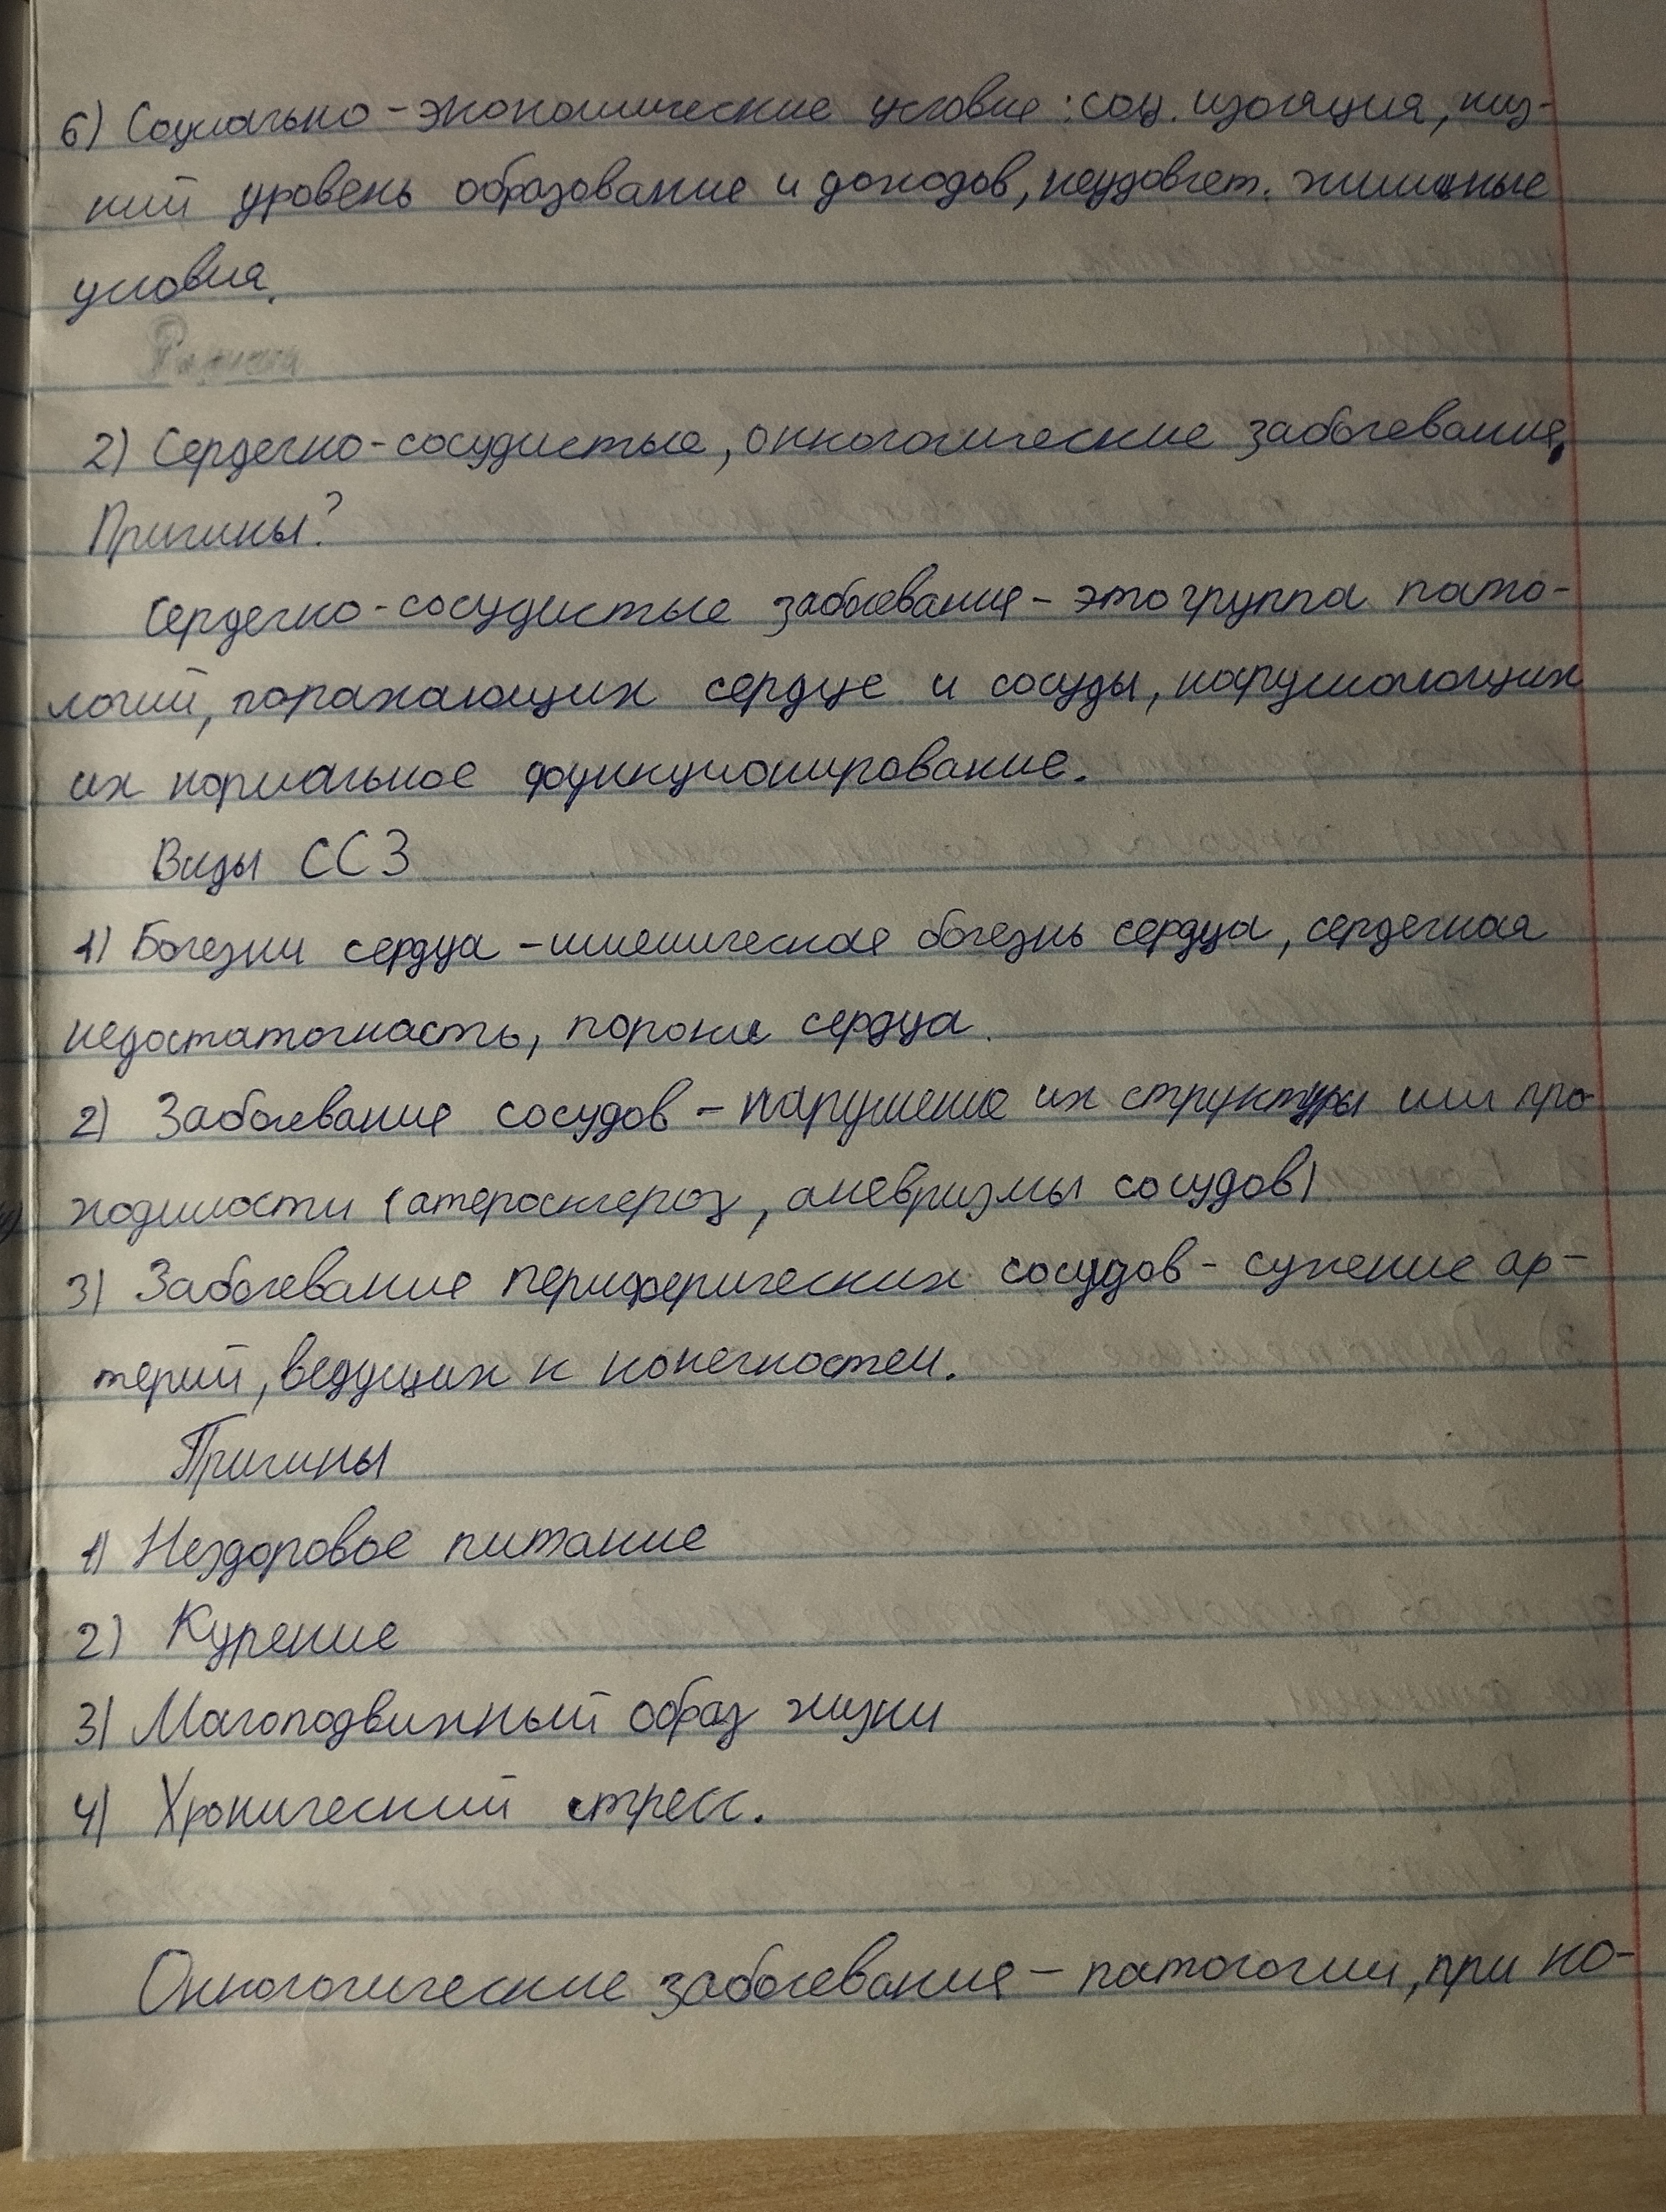 6) Социально-экономические условие: соц. изоляция, низ-
кий уровень образование и доходов, неудовлет. жилищные
условия.
2) Сердечно-сосудистые, онкологические заболевание,
Причины?
Сердечно-сосудистые заболевания - это группа пато-
логий, поражающих сердце и сосуды, нарушающих
их нормальное функционирование.
Виды ССЗ
1) Болезни сердца - ишемическая болезнь сердца, сердечная
недостаточность, пороки сердца.
2) Заболевание сосудов - нарушение их структуры или про-
ходимости (атеросклероз, аневризмы сосудов)
3) Заболевание периферических сосудов - сужение ар-
терий, ведущих к конечностем.
Причины
1) Нездоровое питание
2) Курение
3) Малоподвижный образ жизни
4) Хронический стресс.
Онкологические заболевания - патологии, при ко-